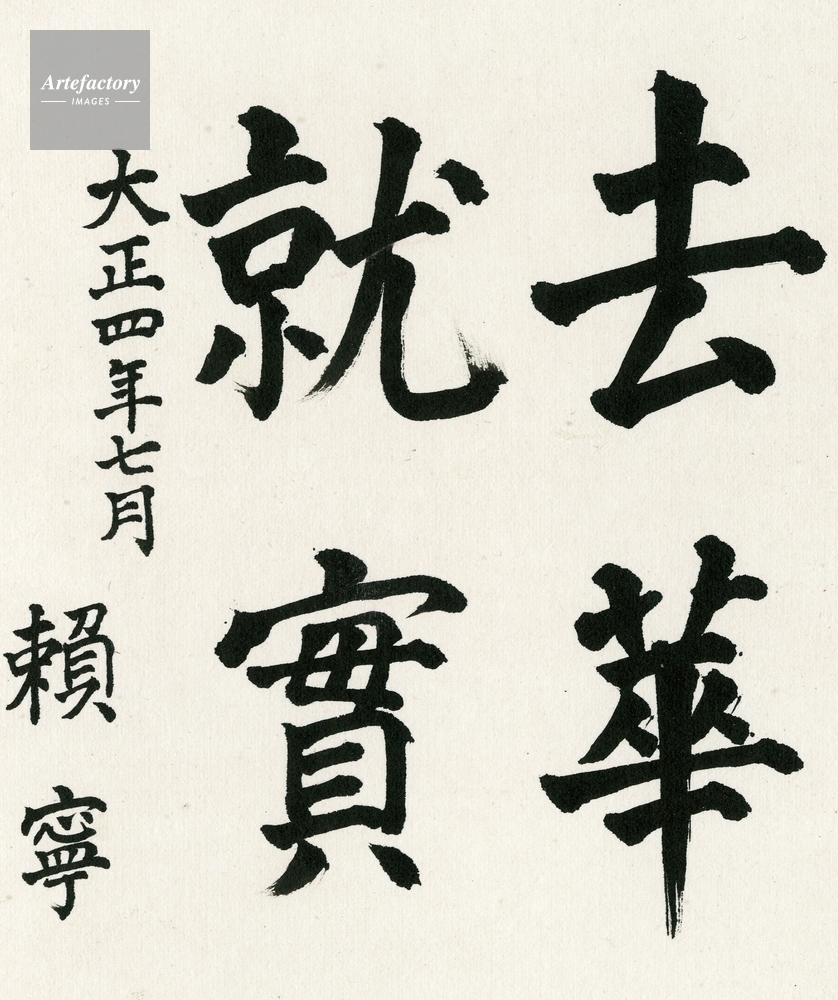 去華
就實
大正四年七月
賴寧
Artefactory
IMAGES